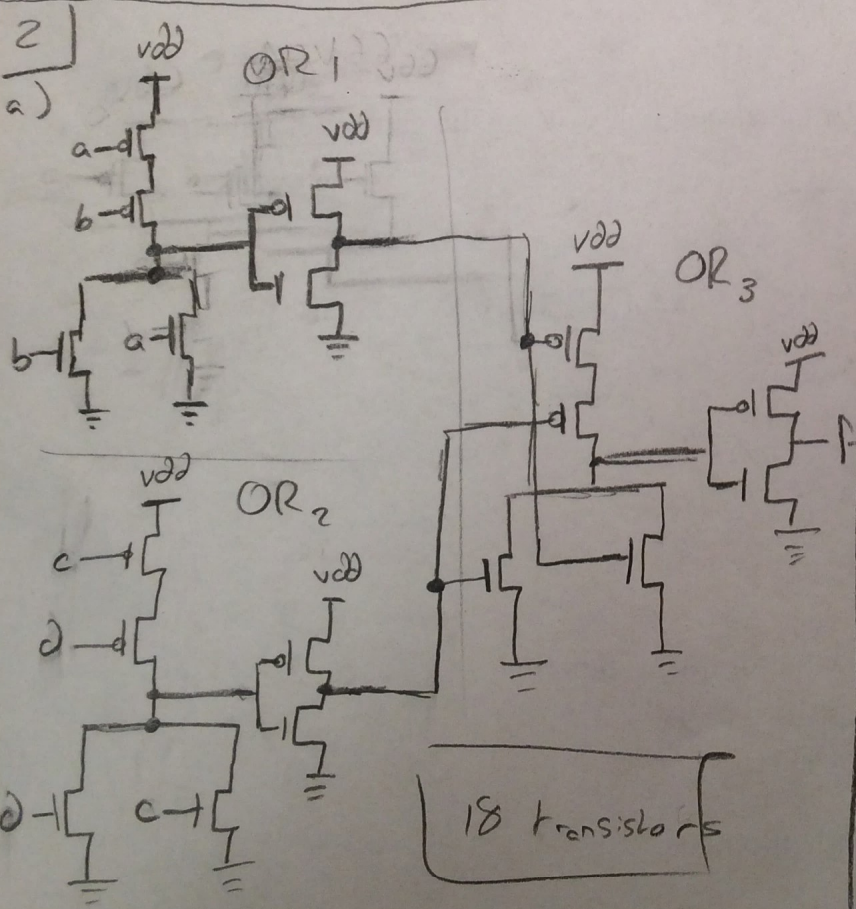 2
a)
vdd
OR1
a
vdd
b
b
a
vdd
OR3
vdd
F
vdd
OR2
c
vdd
d
d
c
18 transistors